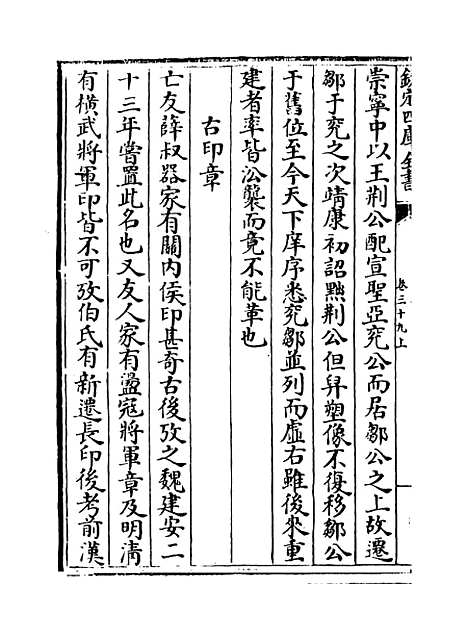 欽定四庫全書
卷三十九上
崇寧中以王荆公配宣聖亞兖公而居鄒公之上故遷
鄒于兖之次靖康初詔黜荆公但舁塑像不復移鄒公
于舊位至今天下庠序悉兖鄒並列而虛右雖後來重
建者率皆沿襲而竟不能革也
古印章
亡友薛叔器家有關内侯印甚奇古後攷之魏建安二
十三年嘗置此名也又友人家有盪寇將軍章及明清
有横武將軍印皆不可攷伯氏有新遷長印後考前漢